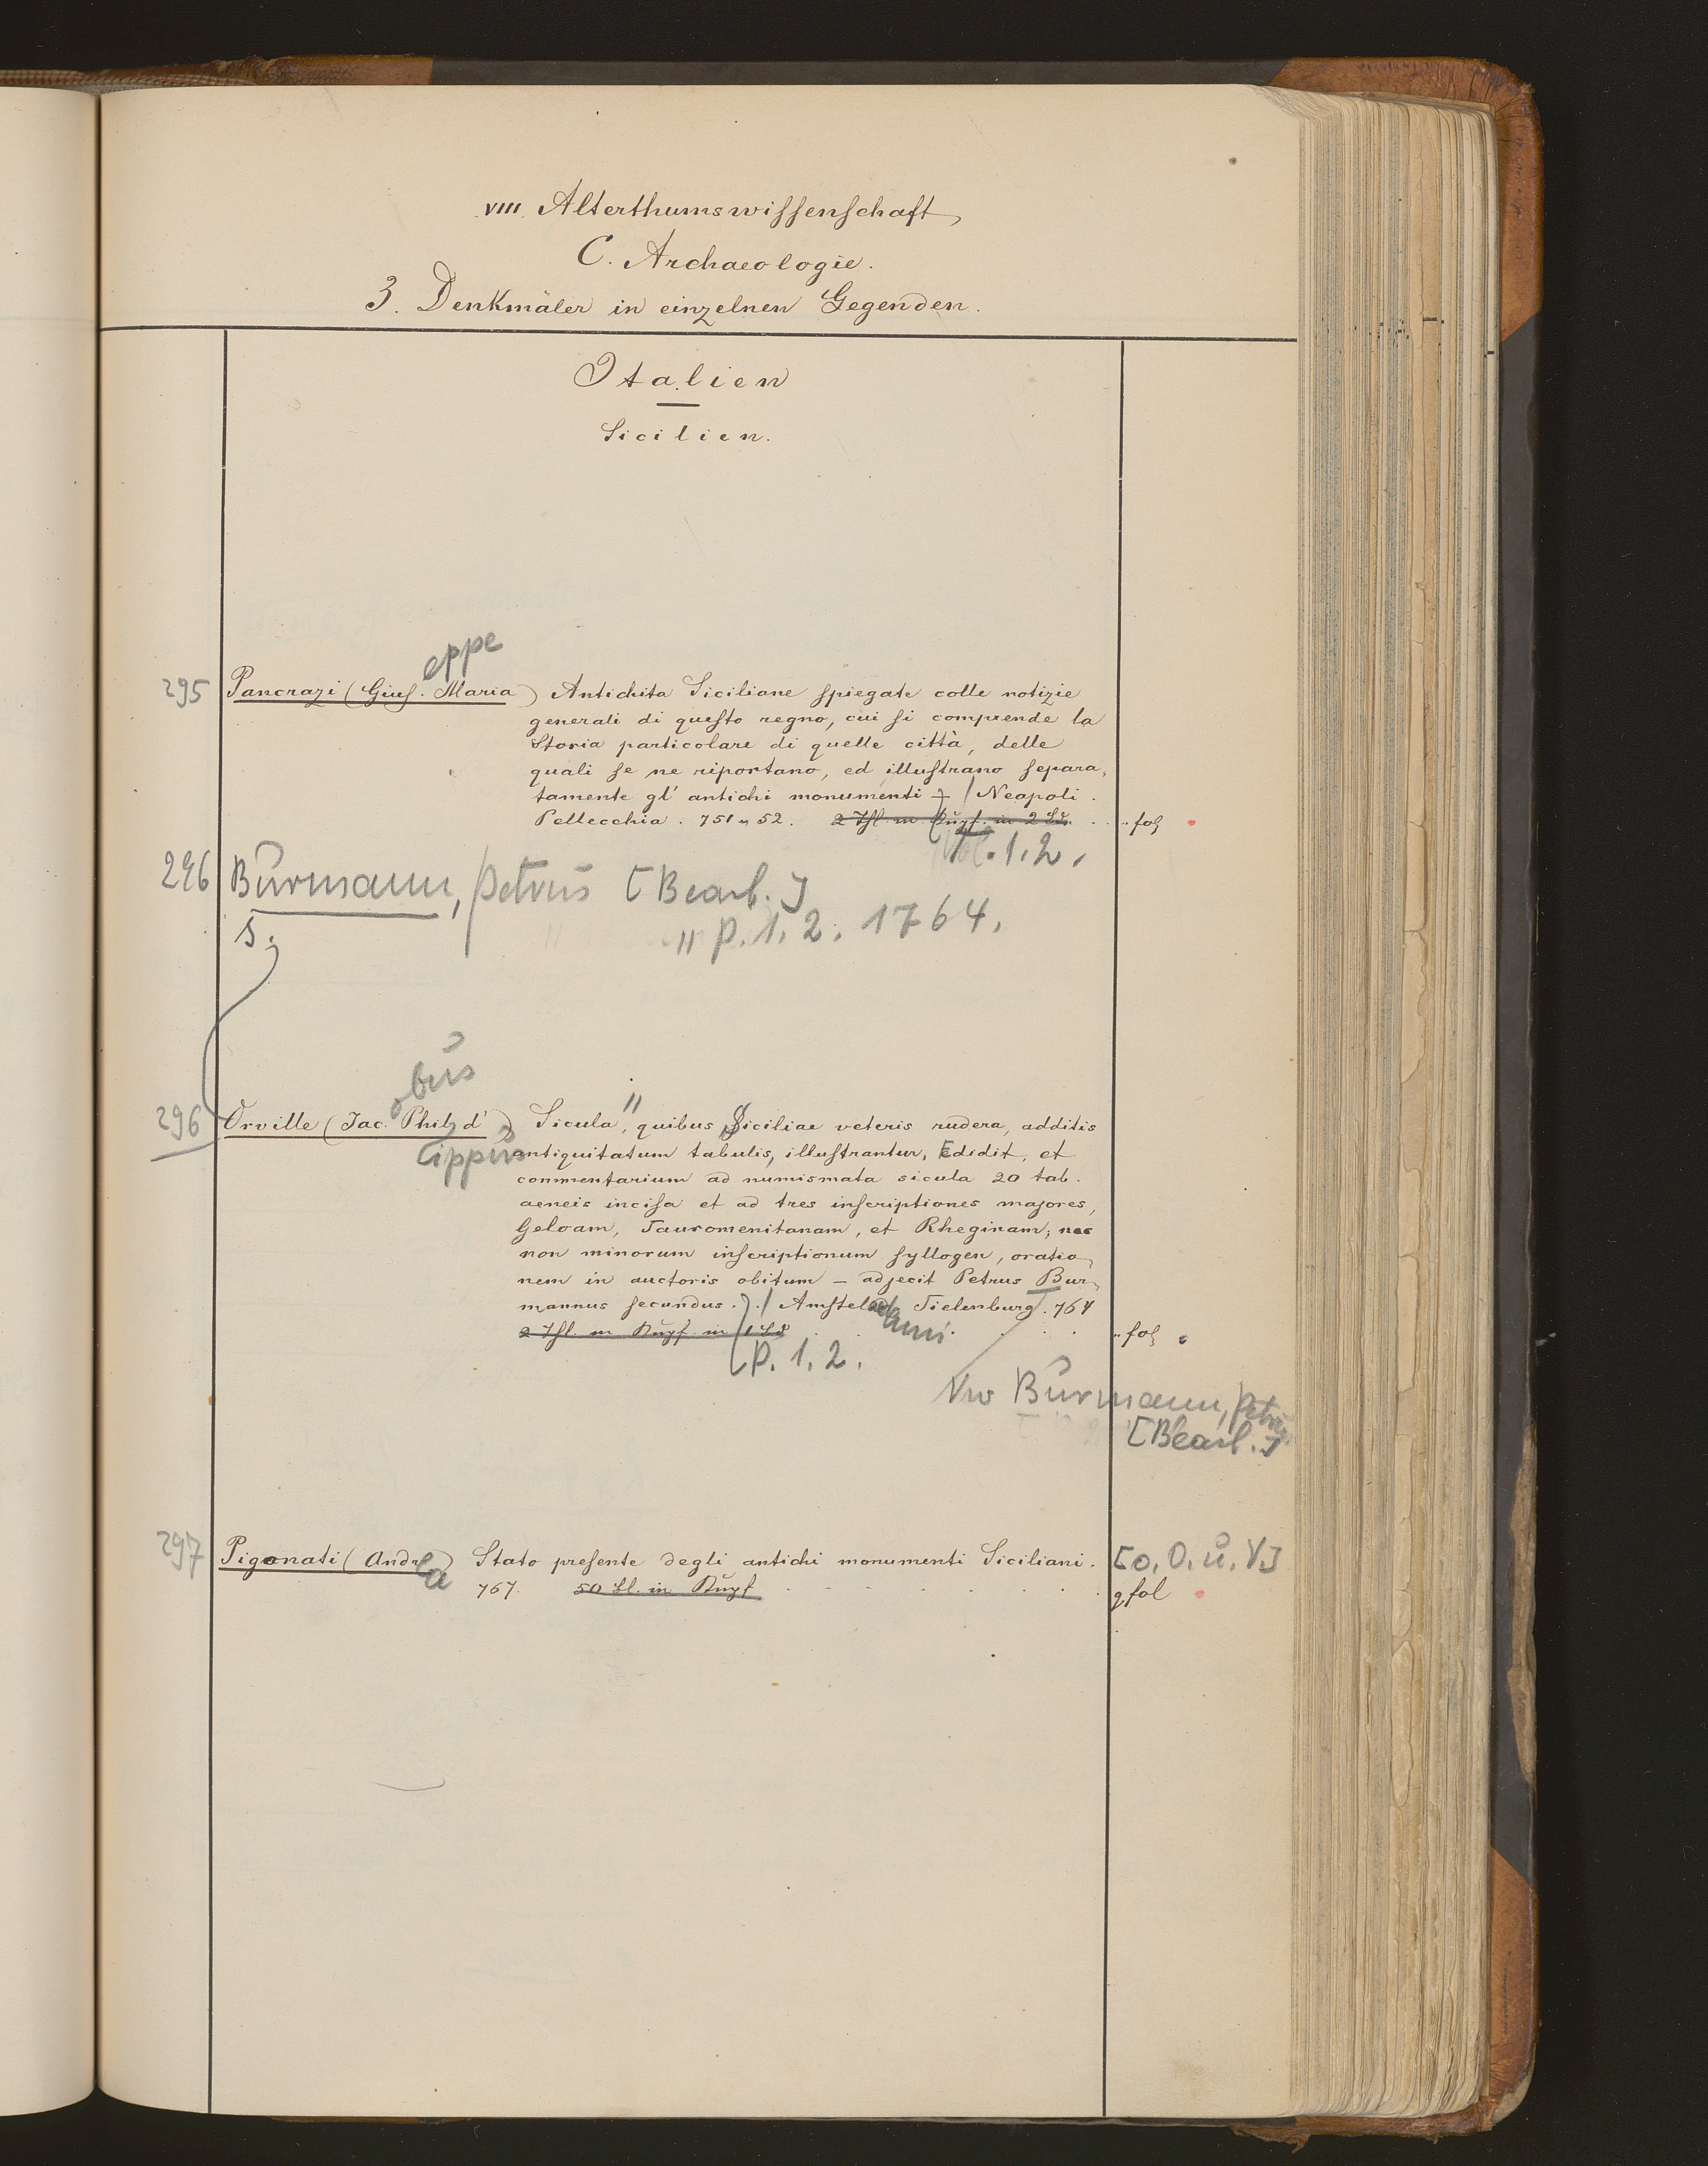 VIII. Alterthumswissenschaft
C. Archaeologie.
3. Denkmäler in einzelnen Gegenden.
Italien
Sicilien.
eppe
295 Pancrazi (Gius. Maria) Antichita Siciliane spiegate colle notizie
generali di questo regno, cui si comprende la
Storia particolare di quelle città, delle
quali se ne riportano, ed illustrano separa-
tamente gl' antichi monumenti / Neapoli.
Pellecchia. 751 u 52. 2 Thl. m Kupf. in 2 Bd. fol
Vol. 1. 2.
296 Burmann, Petrus [Bearb.]
s. " P. 1. 2. 1764.
obus
296 Orville (Jac. Phil. d') Sicula", quibus Siciliae veteris rudera, additis
lippus antiquitatum tabulis, illustrantur, Edidit, et
commentarium ad numismata sicula 20 tab.
aeneis incisa et ad tres inscriptiones majores,
Geloam, Tauromenitanam, et Rheginam; nec
non minorum inscriptionum syllogen, oratio-
nem in auctoris obitum – adjecit Petrus Bur-
mannus secundus. / Amstelod Tielenburg. 764
ami.
2 Thl. m Kupf. in 1 Bd fol
P. 1. 2.
Vw Burmann, Petrus
[Bearb.]
297 Pigonati (Andr) Stato presente degli antichi monumenti Siciliani. [o. O. u. V.]
ea 767. 50 Bl. in Kupf fol